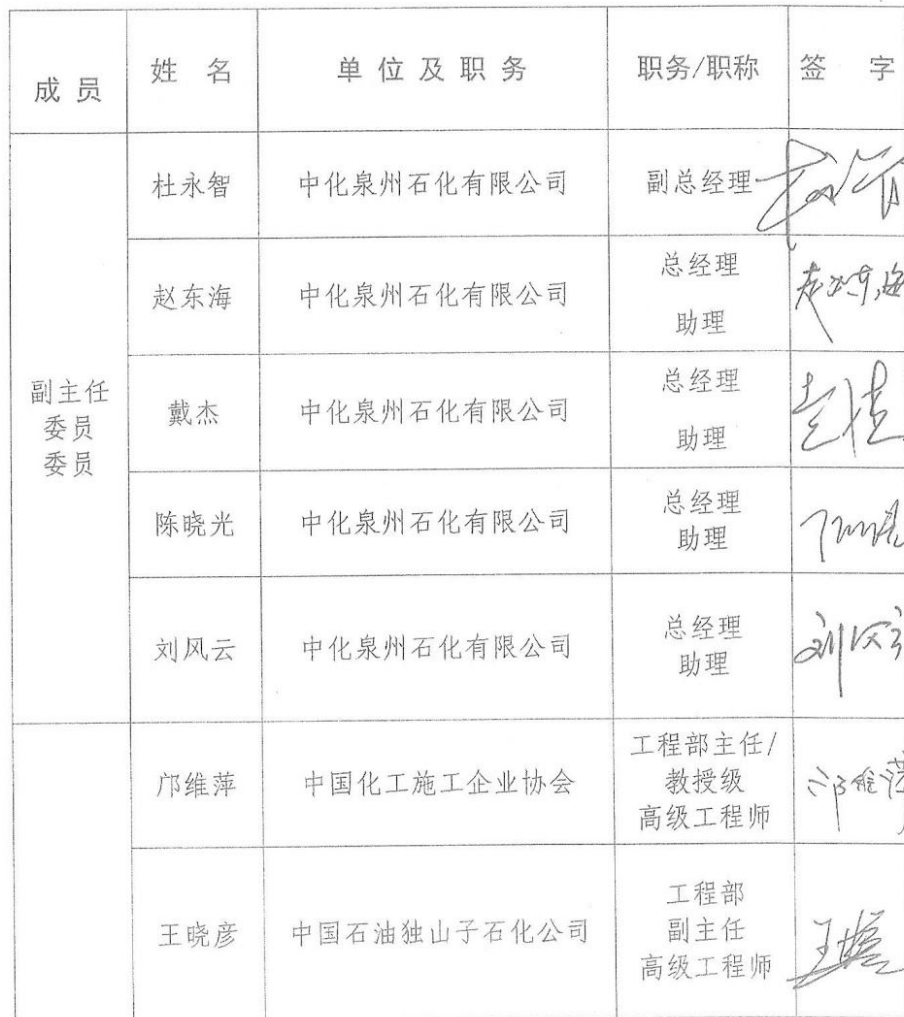 成员 姓名 单位及职务 职务/职称 签字
杜永智 中化泉州石化有限公司 副总经理
赵东海 中化泉州石化有限公司 总经理
助理
赵东海
副主任
委员
委员
戴杰 中化泉州石化有限公司 总经理
助理
陈晓光 中化泉州石化有限公司 总经理
助理
刘风云 中化泉州石化有限公司 总经理
助理
邝维萍 中国化工施工企业协会 工程部主任/
教授级
高级工程师
王晓彦 中国石油独山子石化公司 工程部
副主任
高级工程师